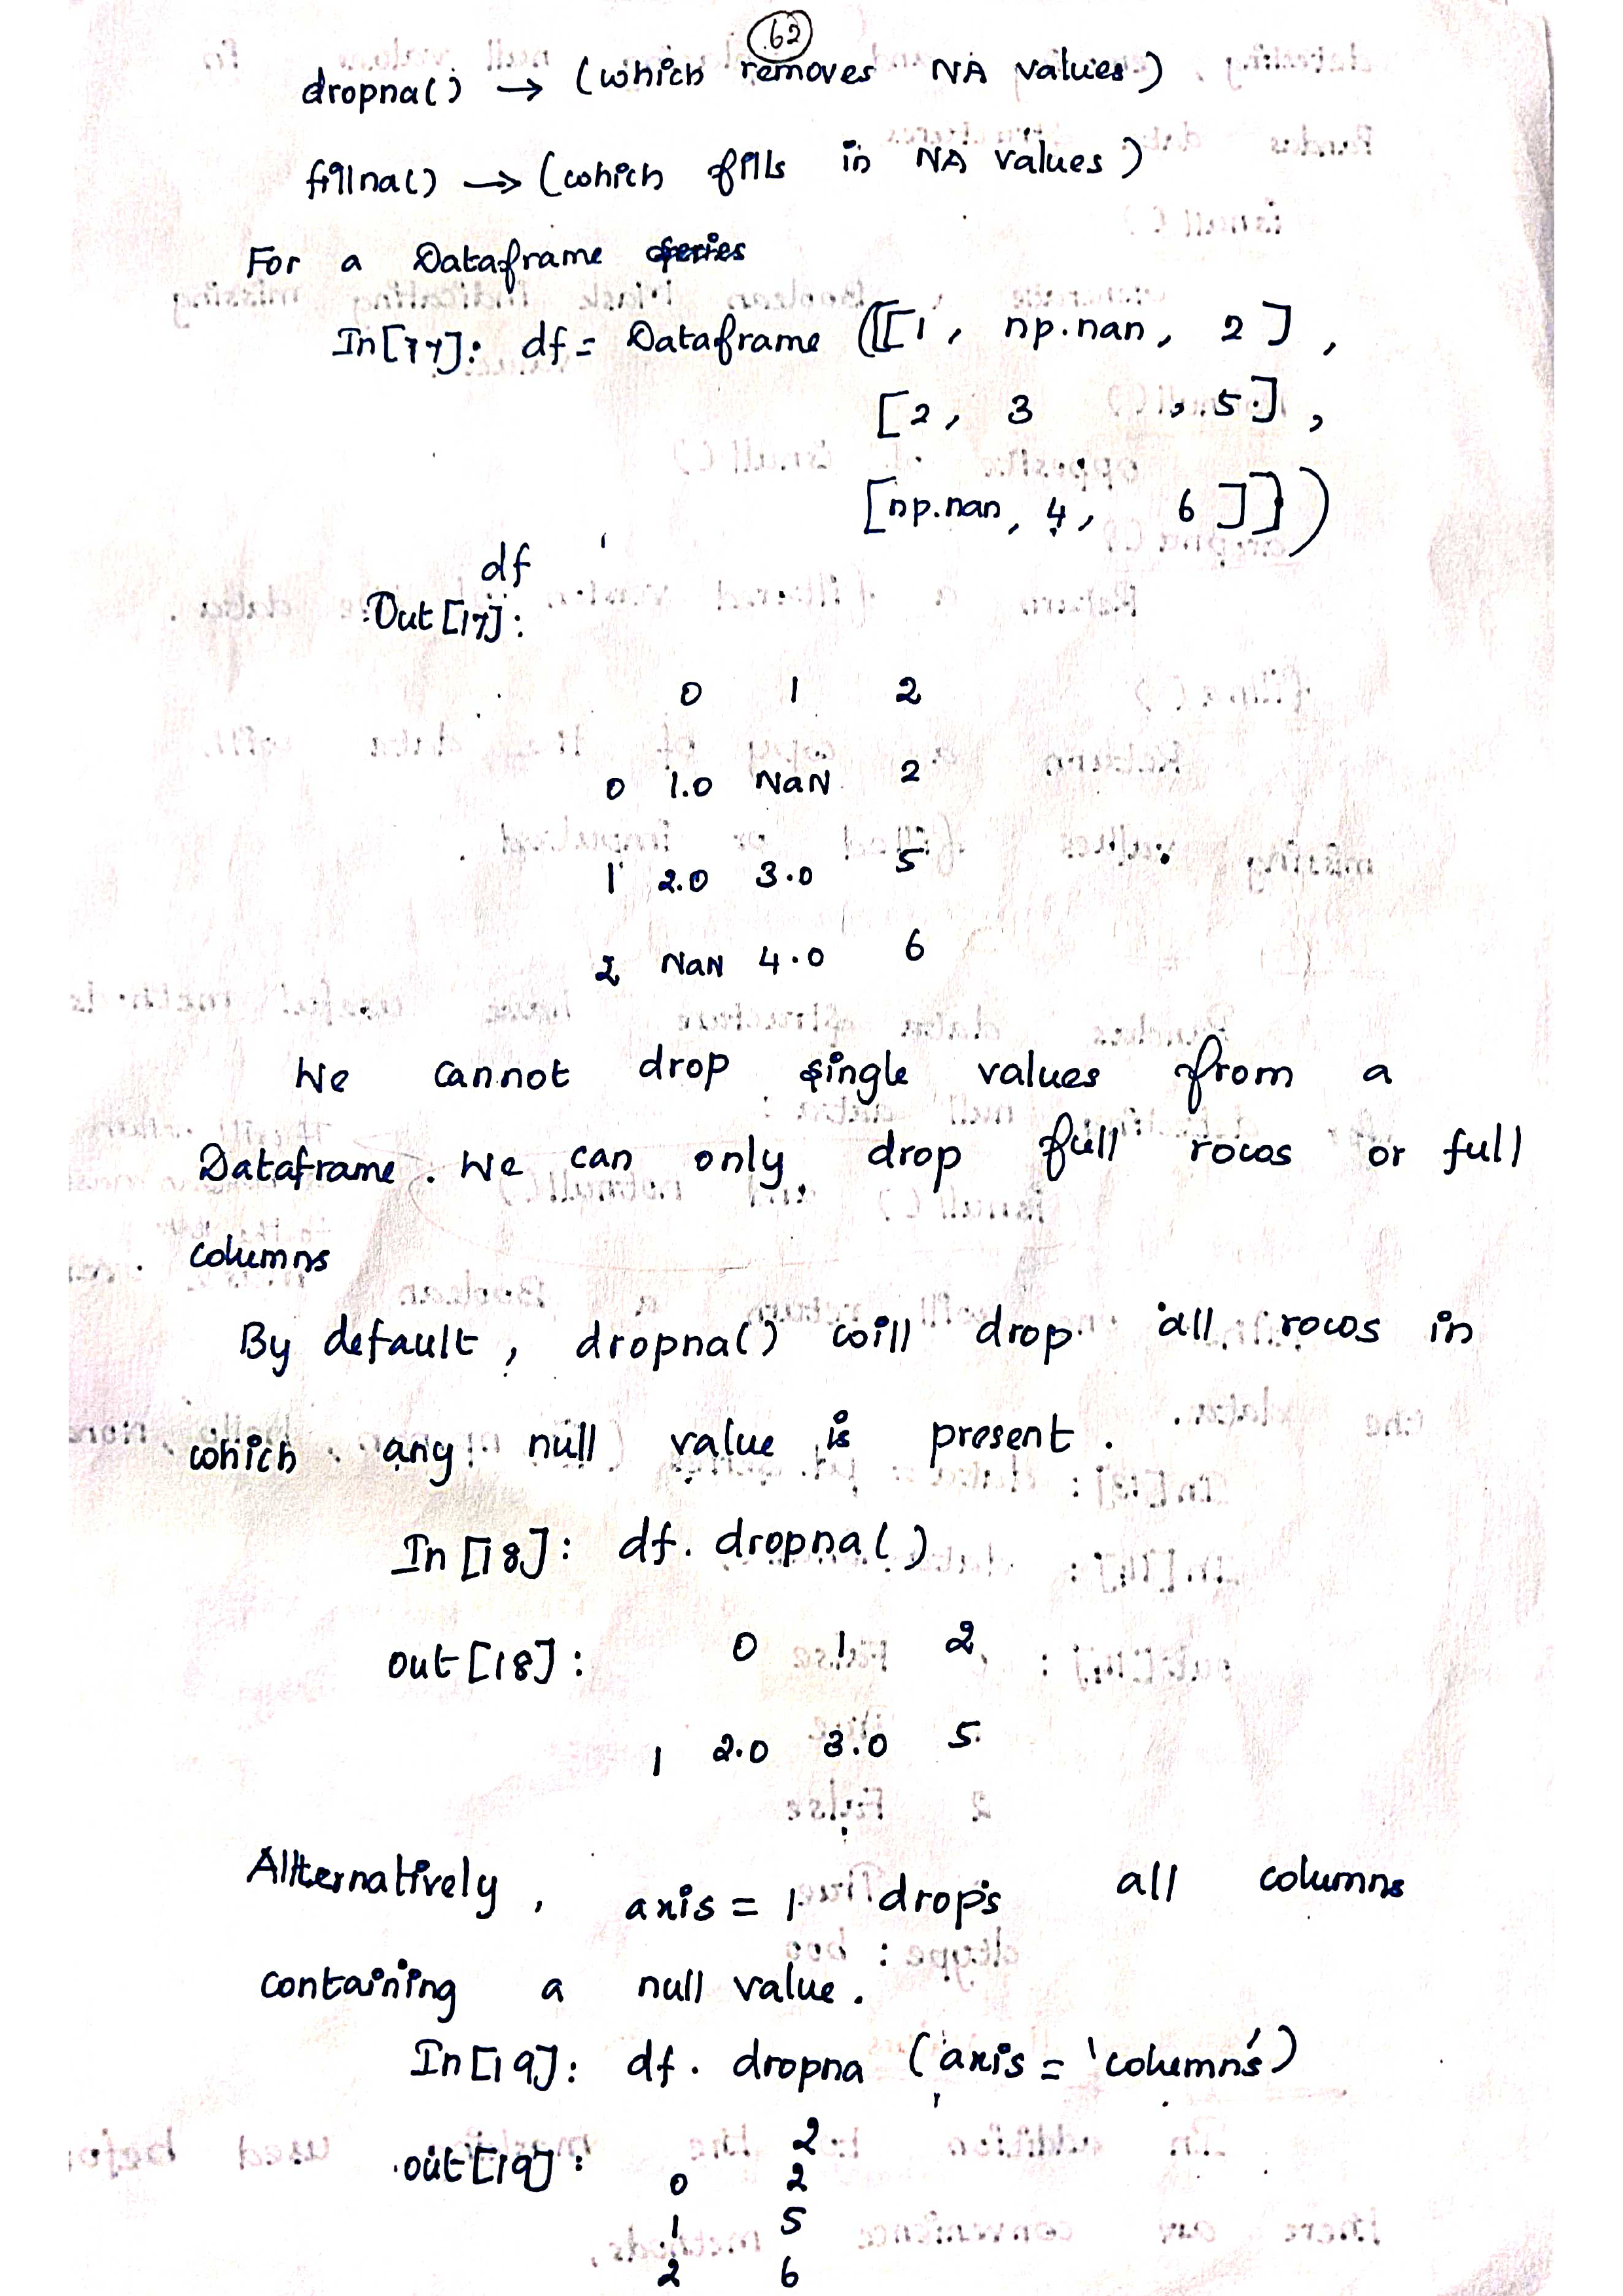 62
dropna() → (which removes NA values)
fillna() → (which fills in NA values)
For a Dataframe series
In[17]: df = Dataframe ([[1, np.nan, 2],
[2, 3 , 5],
[np.nan, 4, 6]])
df
Out[17]:
0 1 2
0 1.0 NaN 2
1 2.0 3.0 5
2 NaN 4.0 6
We cannot drop single values from a
Dataframe. We can only drop full rows or full
columns
By default, dropna() will drop all rows in
which any null value is present.
In[18]: df. dropna()
out[18]: 0 1 2
1 2.0 3.0 5
Allternatively, axis = 1 drops all columns
containing a null value.
In[19]: df. dropna (axis = 'columns')
out[19]: 2
0 2
1 5
2 6